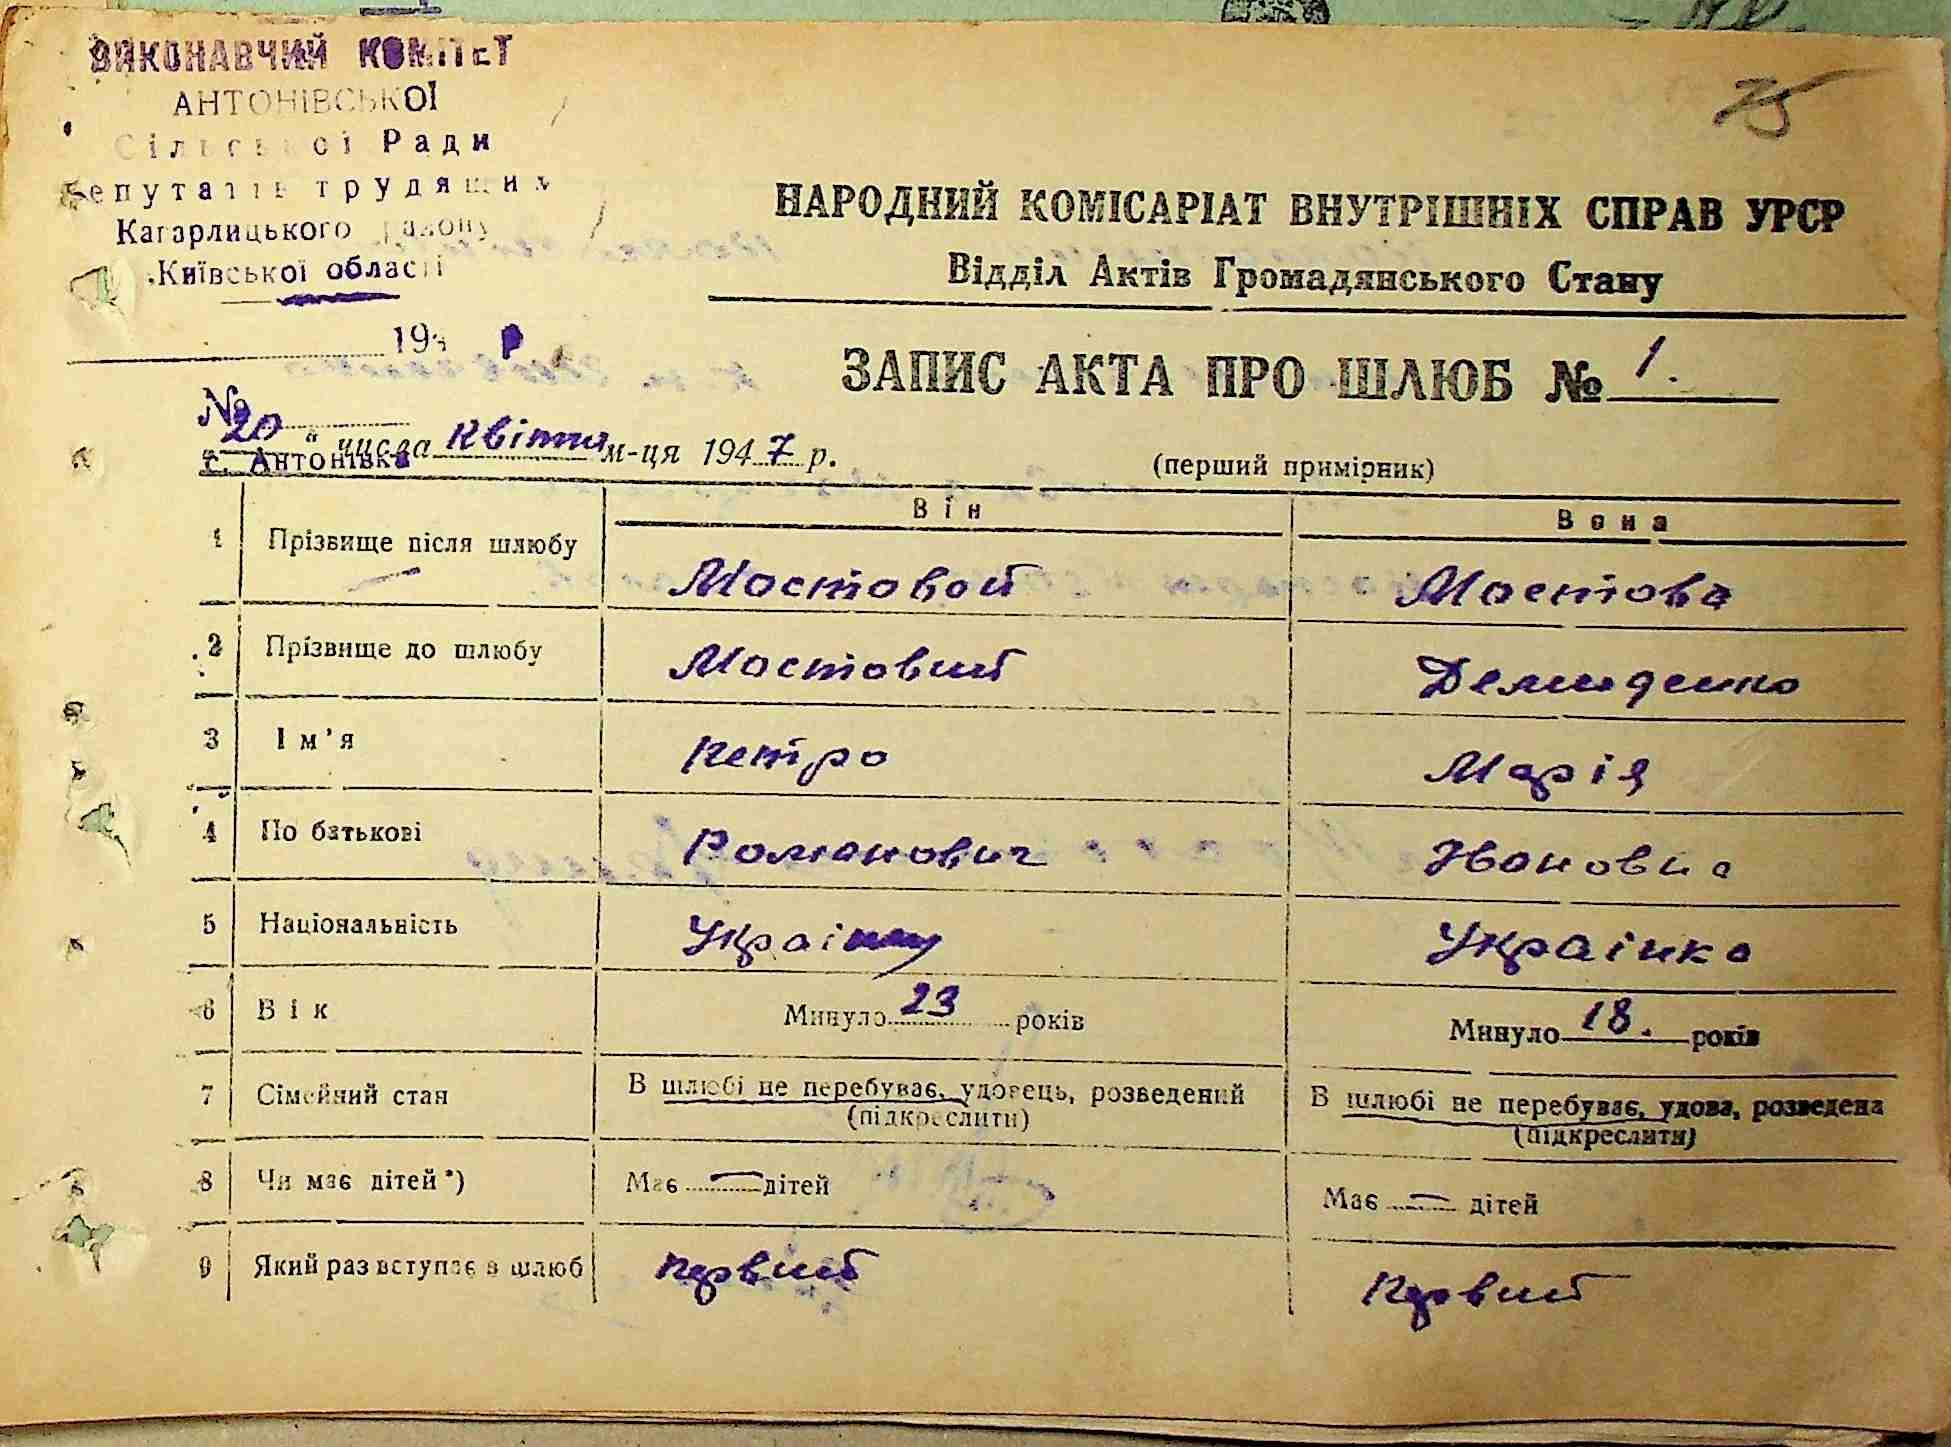 ВИКОНАВЧИЙ КОМІТЕТ
АНТОНІВСЬКОЇ
Сільської Ради
депутатів трудящих
Кагарлицького району
Київської області
194 р
№
с. Антонівка
75
НАРОДНИЙ КОМІСАРІАТ ВНУТРІШНІХ СПРАВ УРСР
Відділ Актів Громадянського Стану
ЗАПИС АКТА ПРО ШЛЮБ № 1.
"20" числа квітня м-ця 1947 р.
(перший примірник)
Він Вона
1 Прізвище після шлюбу Мостовой Мостова
2 Прізвище до шлюбу Мостовий Демиденко
3 Ім'я Петро Марія
4 По батькові Романович Івановна
5 Національність Украінець Украінка
6 Вік Минуло 23 років Минуло 18. років
7 Сімейний стан В шлюбі не перебуває, удовець, розведений (підкреслити) В шлюбі не перебуває, удова, розведена (підкреслити)
8 Чи має дітей*) Має — дітей Має — дітей
9 Який раз вступає в шлюб Первий Первий